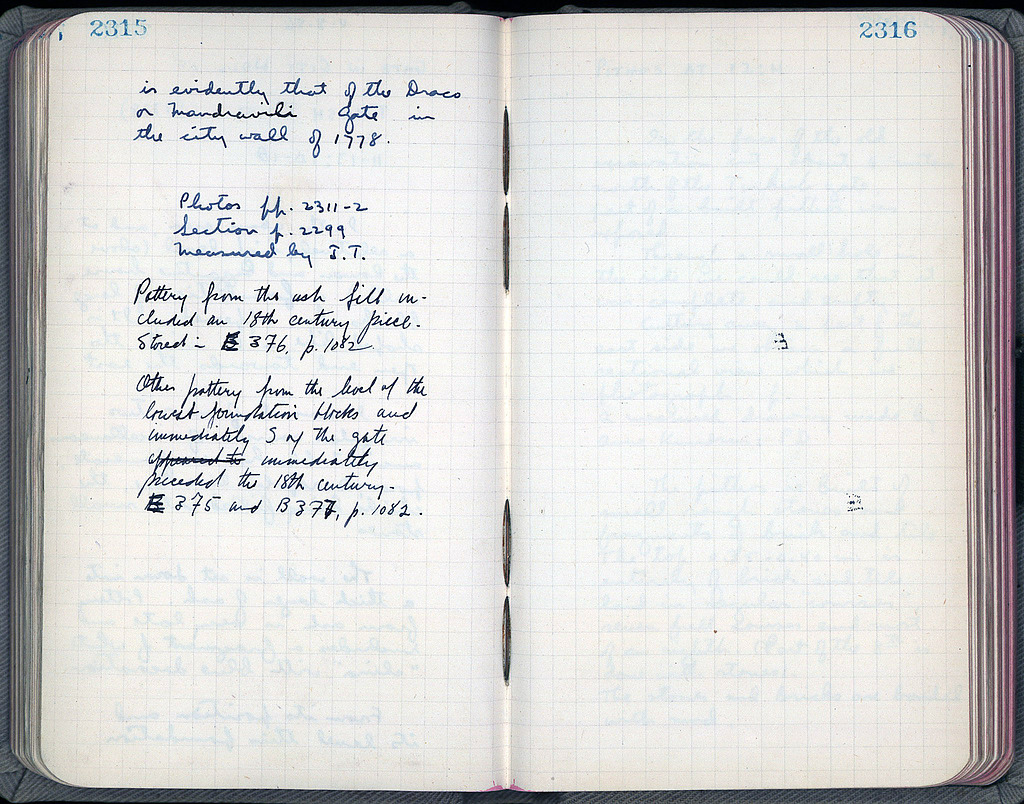 2315
is evidently that of the Draco
or Mandravili gate in
the city wall of 1778.
Photos pp. 2311-2
Section p. 2299
Measured by J.T.
Pottery from the ash fill in-
cluded an 18th century piece.
Stored = E 376, p. 1082
Other pottery from the level of the
lowest foundation blocks and
immediately S of the gate
appeared to immediately
preceded the 18th century.
E 375 and B 377, p. 1082.
2316